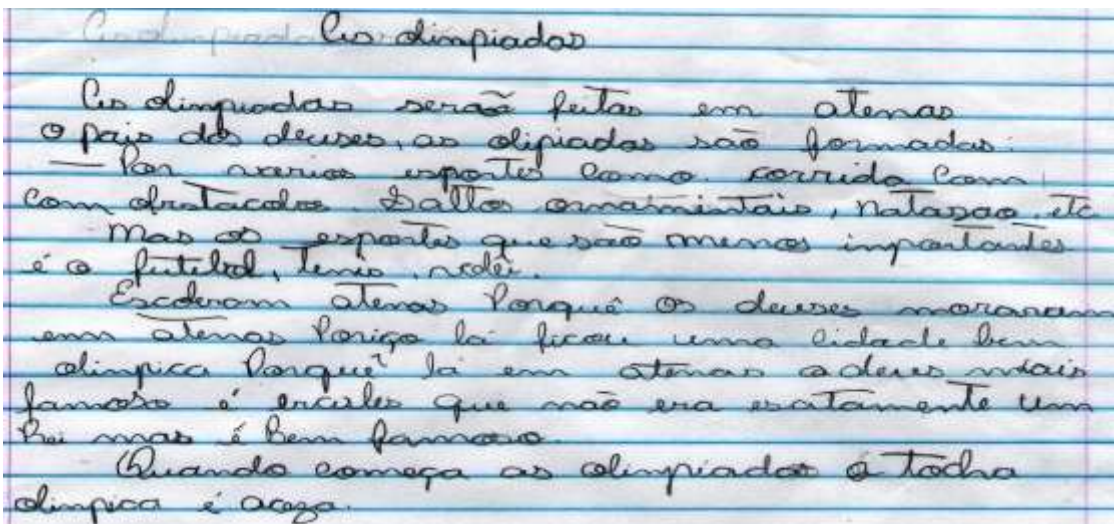 As olimpiadas
As olimpiadas serão feitas em atenas
o pais dos deuses, as olipiadas são formadas:
— Por varios esportes como. corrida com
com obstacolos Saltos ornamintais, natasao, etc
Mas os esportes que são menos importantes
é o futebol, tenis, volei.
Escoleram atenas Porquê os deuses moraram
em atenas Poriço lá ficou uma cidade bem
olimpica Porquê lá em atenas o deus mais
famoso é ercules que não era esatamente um
Rei mas é bem famoso.
Quando começa as olimpiadas a tocha
olimpica é aceza.